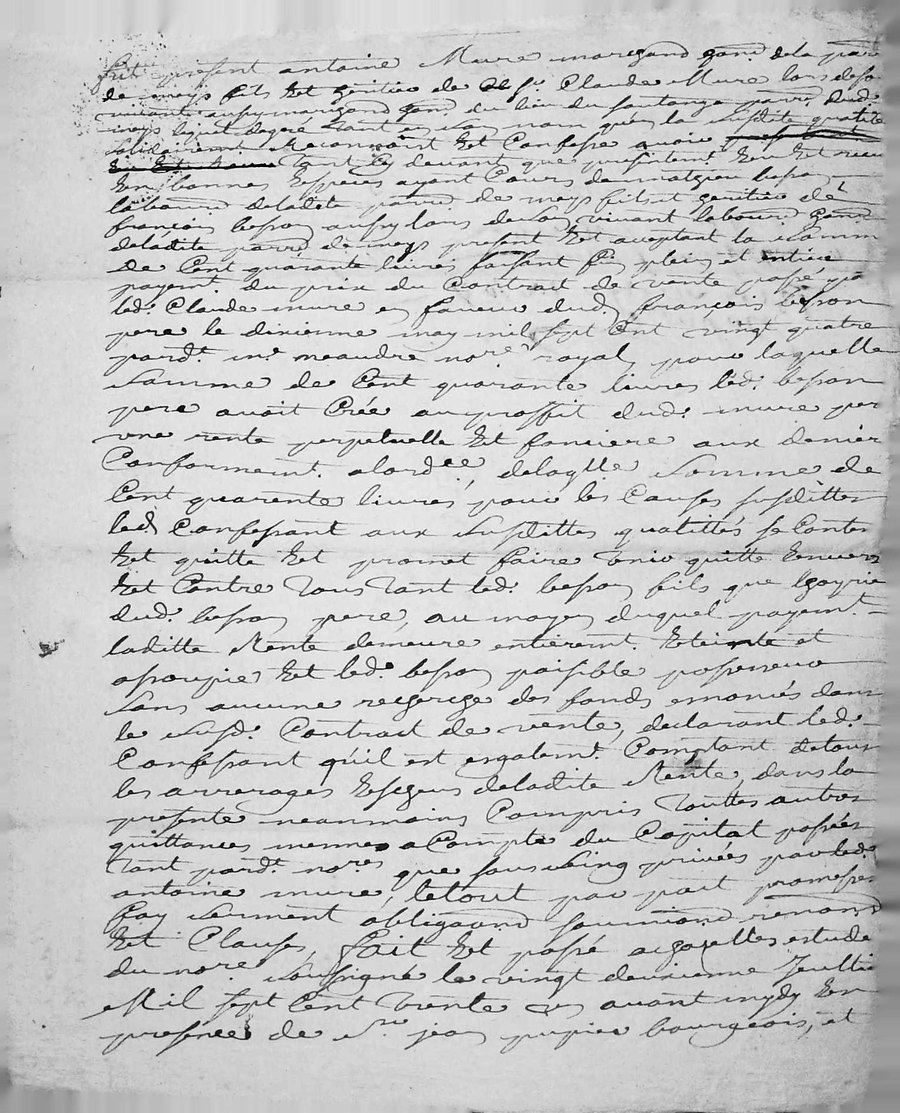 fut present antoine Mure marchand dela parr
de mays fils et heritier de Sr. Claude Mure lors deson
vivant aussy marchand du lieu du parr. dud.
mays lequel degré tant a son nom qu'en la susdite qualité
solidairemt. Reconnoit Et Confesse avoir
tant cy devant que presentemt. Reu Et receu
En bonnes Especes ayant Cours de mathieu besson
laboure. deladite parr. de mays fils et heritier de
françois besson aussy lors deson vivant laboure.
deladite parr. de mays present Et aceptant la somme
de Cent quarante livres faisant fin plein et entier
payemt. du prix du Contrait de vente passé par
led. Claude mure en faveur dud. françois besson
pere le dixienne may mil sept Cent vingt quatre
pardt. me. meaudre nore. royal, pour laquelle
somme de Cent quarante livres led. besson
pere avoit Crée au proffit dud. mure per
une rente perpetuelle Et fonciere aux denier
Conformemt. alordce. delaqlle somme de
Cent quarente livres, pour les Causes susdittes
led. Confessant aux susdittes qualittés se Conten
Et quitte Et promet faire tenir quitte Envers
Et Contre tous tant led. besson fils que lhoyrie
dud. besson pere, au moyen duquel payemt.
laditte Rente demeure entieremt. Eteinte et
assoupie Et led. besson paisible possesseur
sans aucune recherche des fonds enoncés dans
le susd. Contrait de vente, declarant led.
Confessant qu'il est esgalemt. Comptant detous
les arrerages Escheus deladite Rente, dans la
presente neanmoins Compris touttes autres
quittances mennes a Compte du Capital passées
tant pardt. nores. que sous seing privées par led.
antoine mure, letout par pait promesses
foy serment obligaond. soumiond. renond.
Et Clauses, fait Et passé a estude
du nore. soussigné le vingt deuxienne Jeullie
Mil sept Cent trente avant mydy En
presence de Sre. jean pupier bourgeois, et